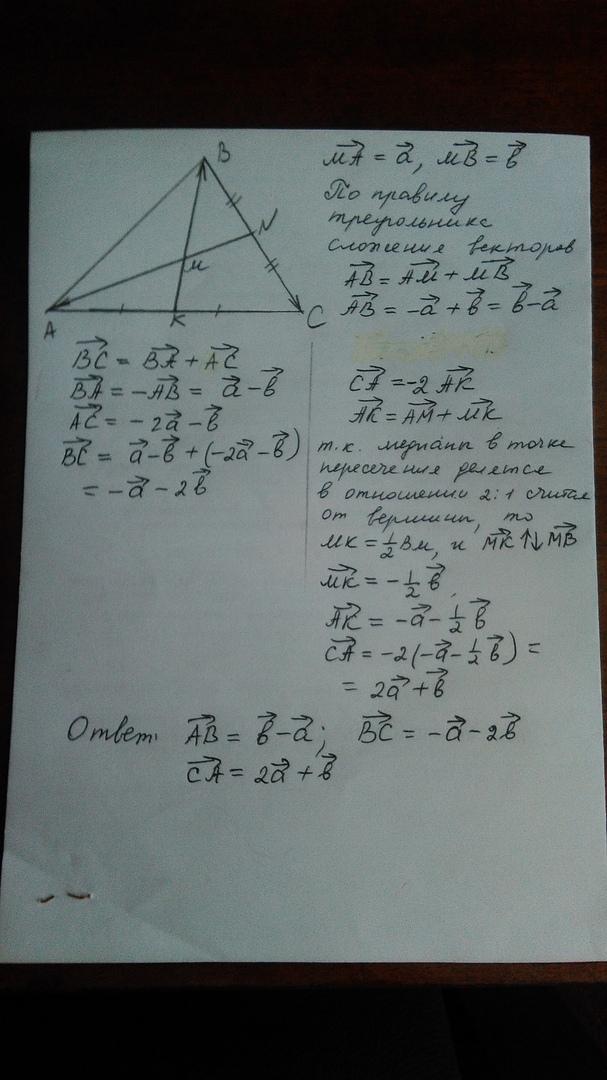 B
N
M
A
K
C
MA→ = a→, MB→ = b→
По правилу
треугольника
сложения векторов
AB→ = AM→ + MB→
AB→ = -a→ + b→ = b→ - a→
BC→ = BA→ + AC→
BA→ = -AB→ = a→ - b→
AC→ = -2a→ - b→
BC→ = a→ - b→ + (-2a→ - b→)
= -a→ - 2b→
CA→ = -2 AK→
AK→ = AM→ + MK→
т.к. медианы в точке
пересечения делятся
в отношении 2:1 считая
от вершины, то
MK = 1/2 BM, и MK→ ↑↓ MB→
MK→ = -1/2 b→,
AK→ = -a→ - 1/2 b→
CA→ = -2(-a→ - 1/2 b→) =
= 2a→ + b→
Ответ: AB→ = b→ - a→; BC→ = -a→ - 2b→
CA→ = 2a→ + b→